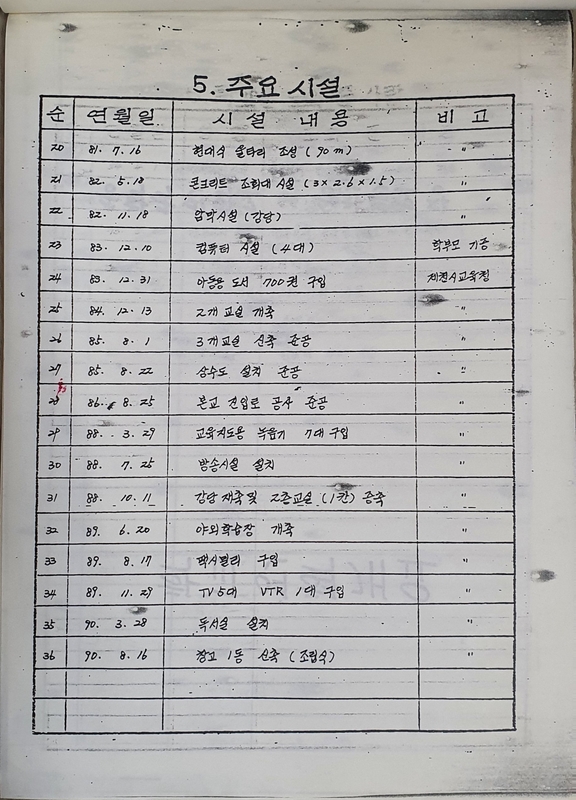 5. 주요 시설
순 연월일 시설 내용 비고
20 81. 7. 16 현대식 울타리 조성 (90m) "
21 82. 5. 18 콘크리트 조회대 시설 (3×2.6×1.5) "
22 82. 11. 18 암막시설 (강당) "
23 83. 12. 10 컴퓨터 시설 (4대) 학부모 기증
24 83. 12. 31 아동용 도서 700권 구입 제천시교육청
25 84. 12. 13 2개 교실 개축 "
26 85. 8. 1 3개교실 신축 준공 "
27 85. 8. 22 상수도 설치 준공 "
28 86. 8. 25 본교 진입로 공사 준공 "
29 88. 3. 29 교육지도용 녹음기 7대 구입 "
30 88. 7. 25 방송시설 설치 "
31 88. 10. 11 강당 개축 및 2층교실 (1칸) 증축 "
32 89. 6. 20 야외학습장 개축 "
33 89. 8. 17 팩시밀리 구입 "
34 89. 11. 29 TV 5대 VTR 1대 구입 "
35 90. 3. 28 독서실 설치 "
36 90. 8. 16 창고 1동 신축 (조립식) "